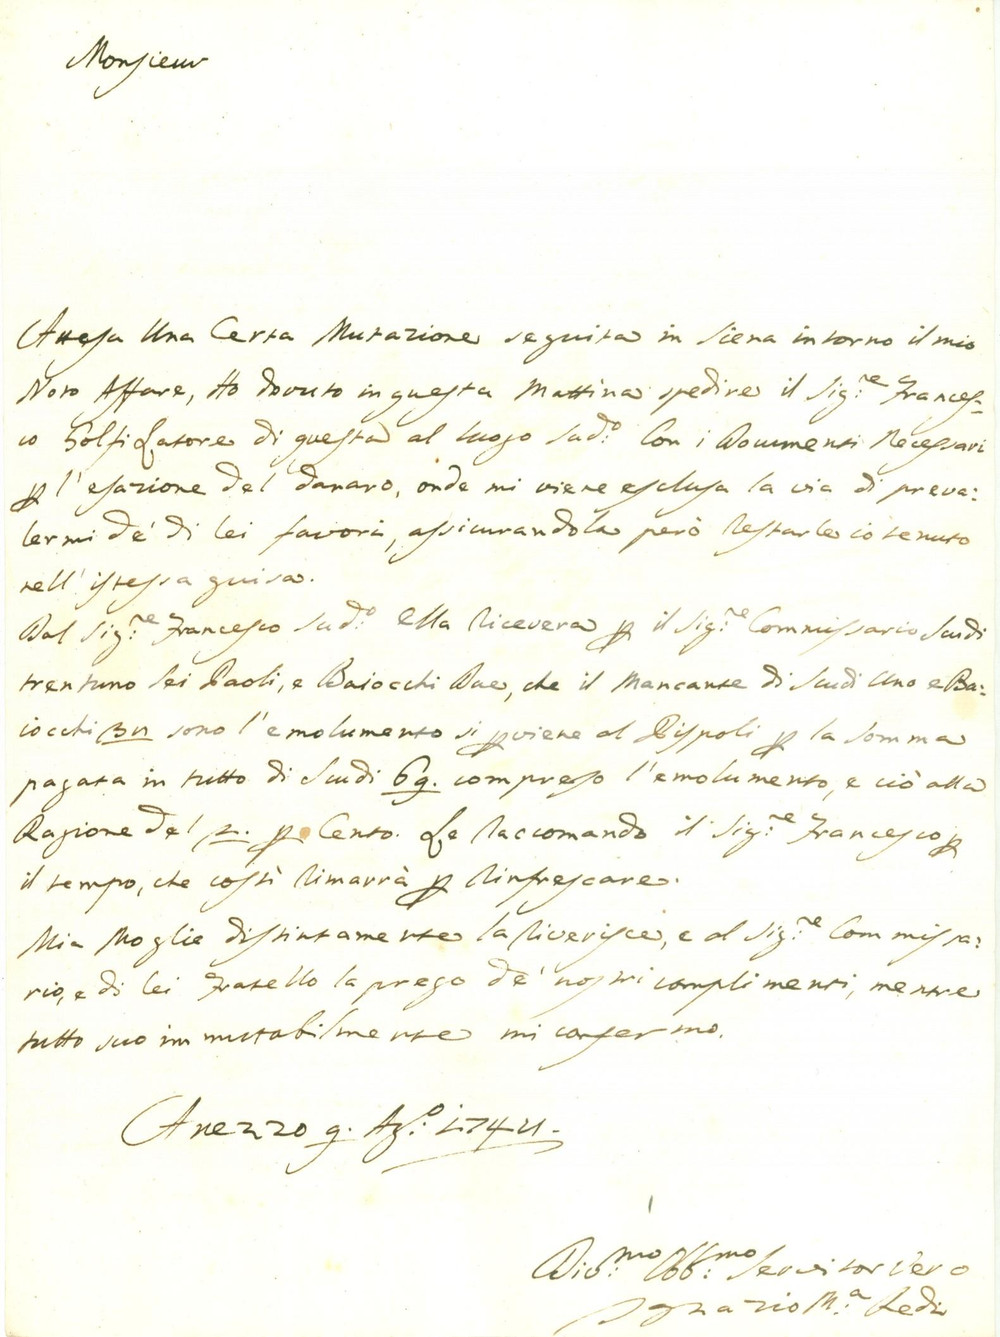 Monsieur
Attesa Una Certa Mutazione seguita in Siena intorno il mio
Noto Affare, Ho dovuto in questa Mattina spedire il Sig:re Frances-
co Golfi Latore di questa al luogo sud:o Con i Documenti Necessari
p l'esazione del danaro, onde mi viene esclusa la via di preva:
lermi de' di lei favori, assicurandola però restarle io tenuto
nell'istessa guisa.
Dal Sig:re Francesco sud:o Ella riceverà p il Sig:re Commissario Scudi
trentuno sei Paoli, e Baiocchi Due, che il Mancante di Scudi Uno e Ba:
iocchi sono l'emolumento si pviene al Rispoli p la somma
pagata in tutto di Scudi 69. compreso l'emolumento, e ciò alla
Ragione del 2. p Cento. Le raccomando il Sig:re Francesco p
il tempo, che costì rimarrà p rinfrescare.
Mia Moglie distintamente la riverisce, e al Sig:re Commissa:
rio, e di lei Fratello la prego de' nostri complimenti, mentre
tutto suo immutabilmente mi confermo.
Arezzo 9. Ag:o
Div:mo Obb:mo Servitor Vero
Ignazio M:a Redi